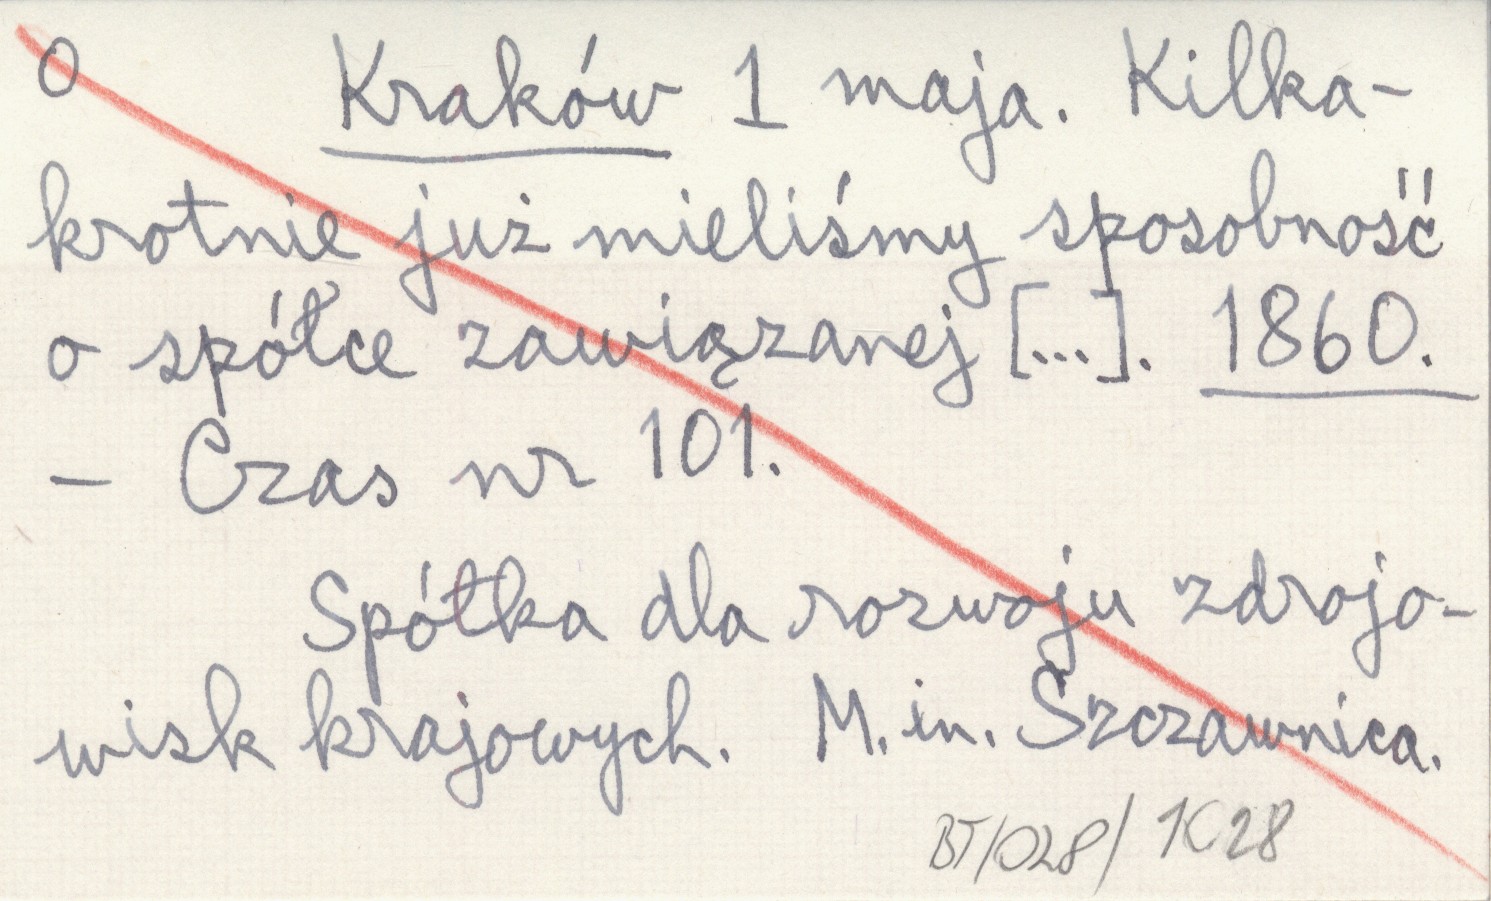 O Kraków 1 maja. Kilka-
krotnie już mieliśmy sposobność
o spółce zawiązanej [...]. 1860.
- Czas nr 101.
Spółka dla rozwoju zdrojo-
wisk krajowych. M. in. Szczawnica.
BT/028/1028